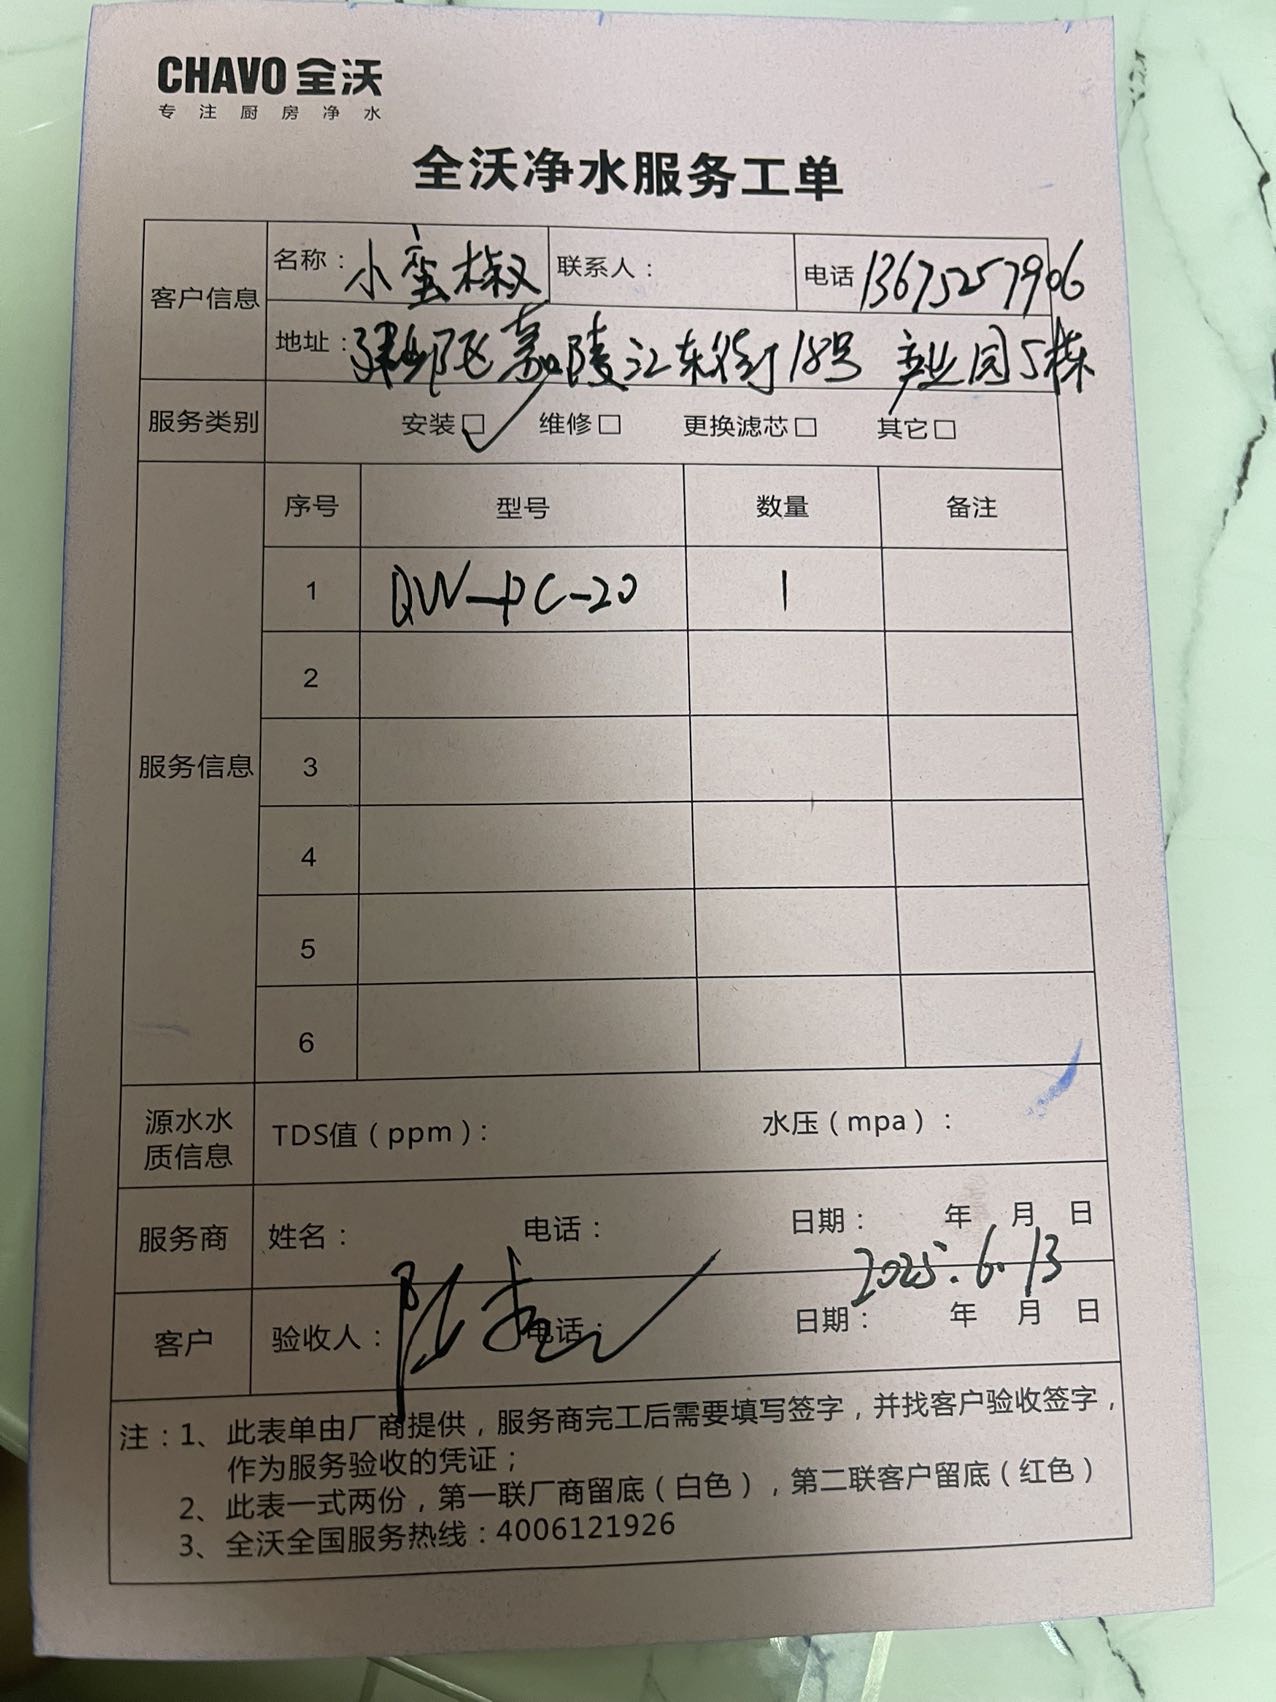 CHAVO 全沃
专注厨房净水
全沃净水服务工单
客户信息
名称：小蛮椒 联系人： 电话 13675257906
地址：建邺区嘉陵江东街18号 产业园5栋
服务类别 安装☑ 维修□ 更换滤芯□ 其它□
服务信息
序号 型号 数量 备注
1 QW-PC-20 1
2
3
4
5
6
源水水质信息 TDS值（ppm）： 水压（mpa）：
服务商 姓名： 电话： 日期： 年 月 日
2025.6.13
客户 验收人：陈 电话： 日期： 年 月 日
注：1、此表单由厂商提供，服务商完工后需要填写签字，并找客户验收签字，
作为服务验收的凭证；
2、此表一式两份，第一联厂商留底（白色），第二联客户留底（红色）
3、全沃全国服务热线：4006121926